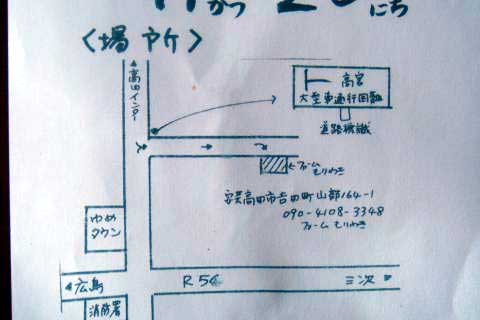 がつ にち
〈場所〉
高田インター
高宮
大型車通行困難
道路標識
ファーム
もりわき
安芸高田市吉田町山部164-1
090-4108-3348
ファームもりわき
ゆめ
タウン
広島
R54
三次
消防署